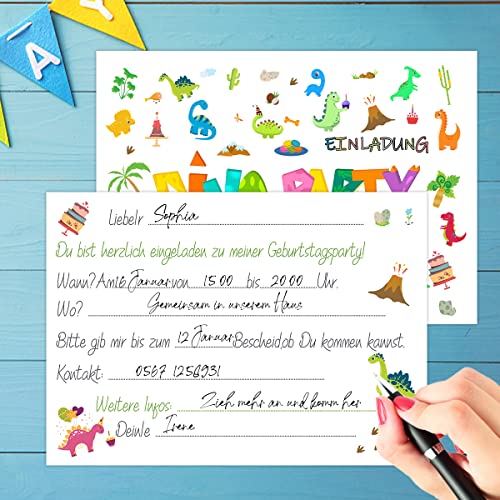 Y
A
EINLADUNG
DINO PARTY
Liebe/r Sophia
Du bist herzlich eingeladen zu meiner Geburtstagsparty!
Wann? Am 16 Januar von 15 00 bis 20 00 Uhr.
Wo? Gemeinsam in unserem Haus
Bitte gib mir bis zum 12 Januar Bescheid,ob Du kommen kannst.
Kontakt: 0567 1256931
Weitere Infos: Zieh mehr an und komm her
Dein/e Irene